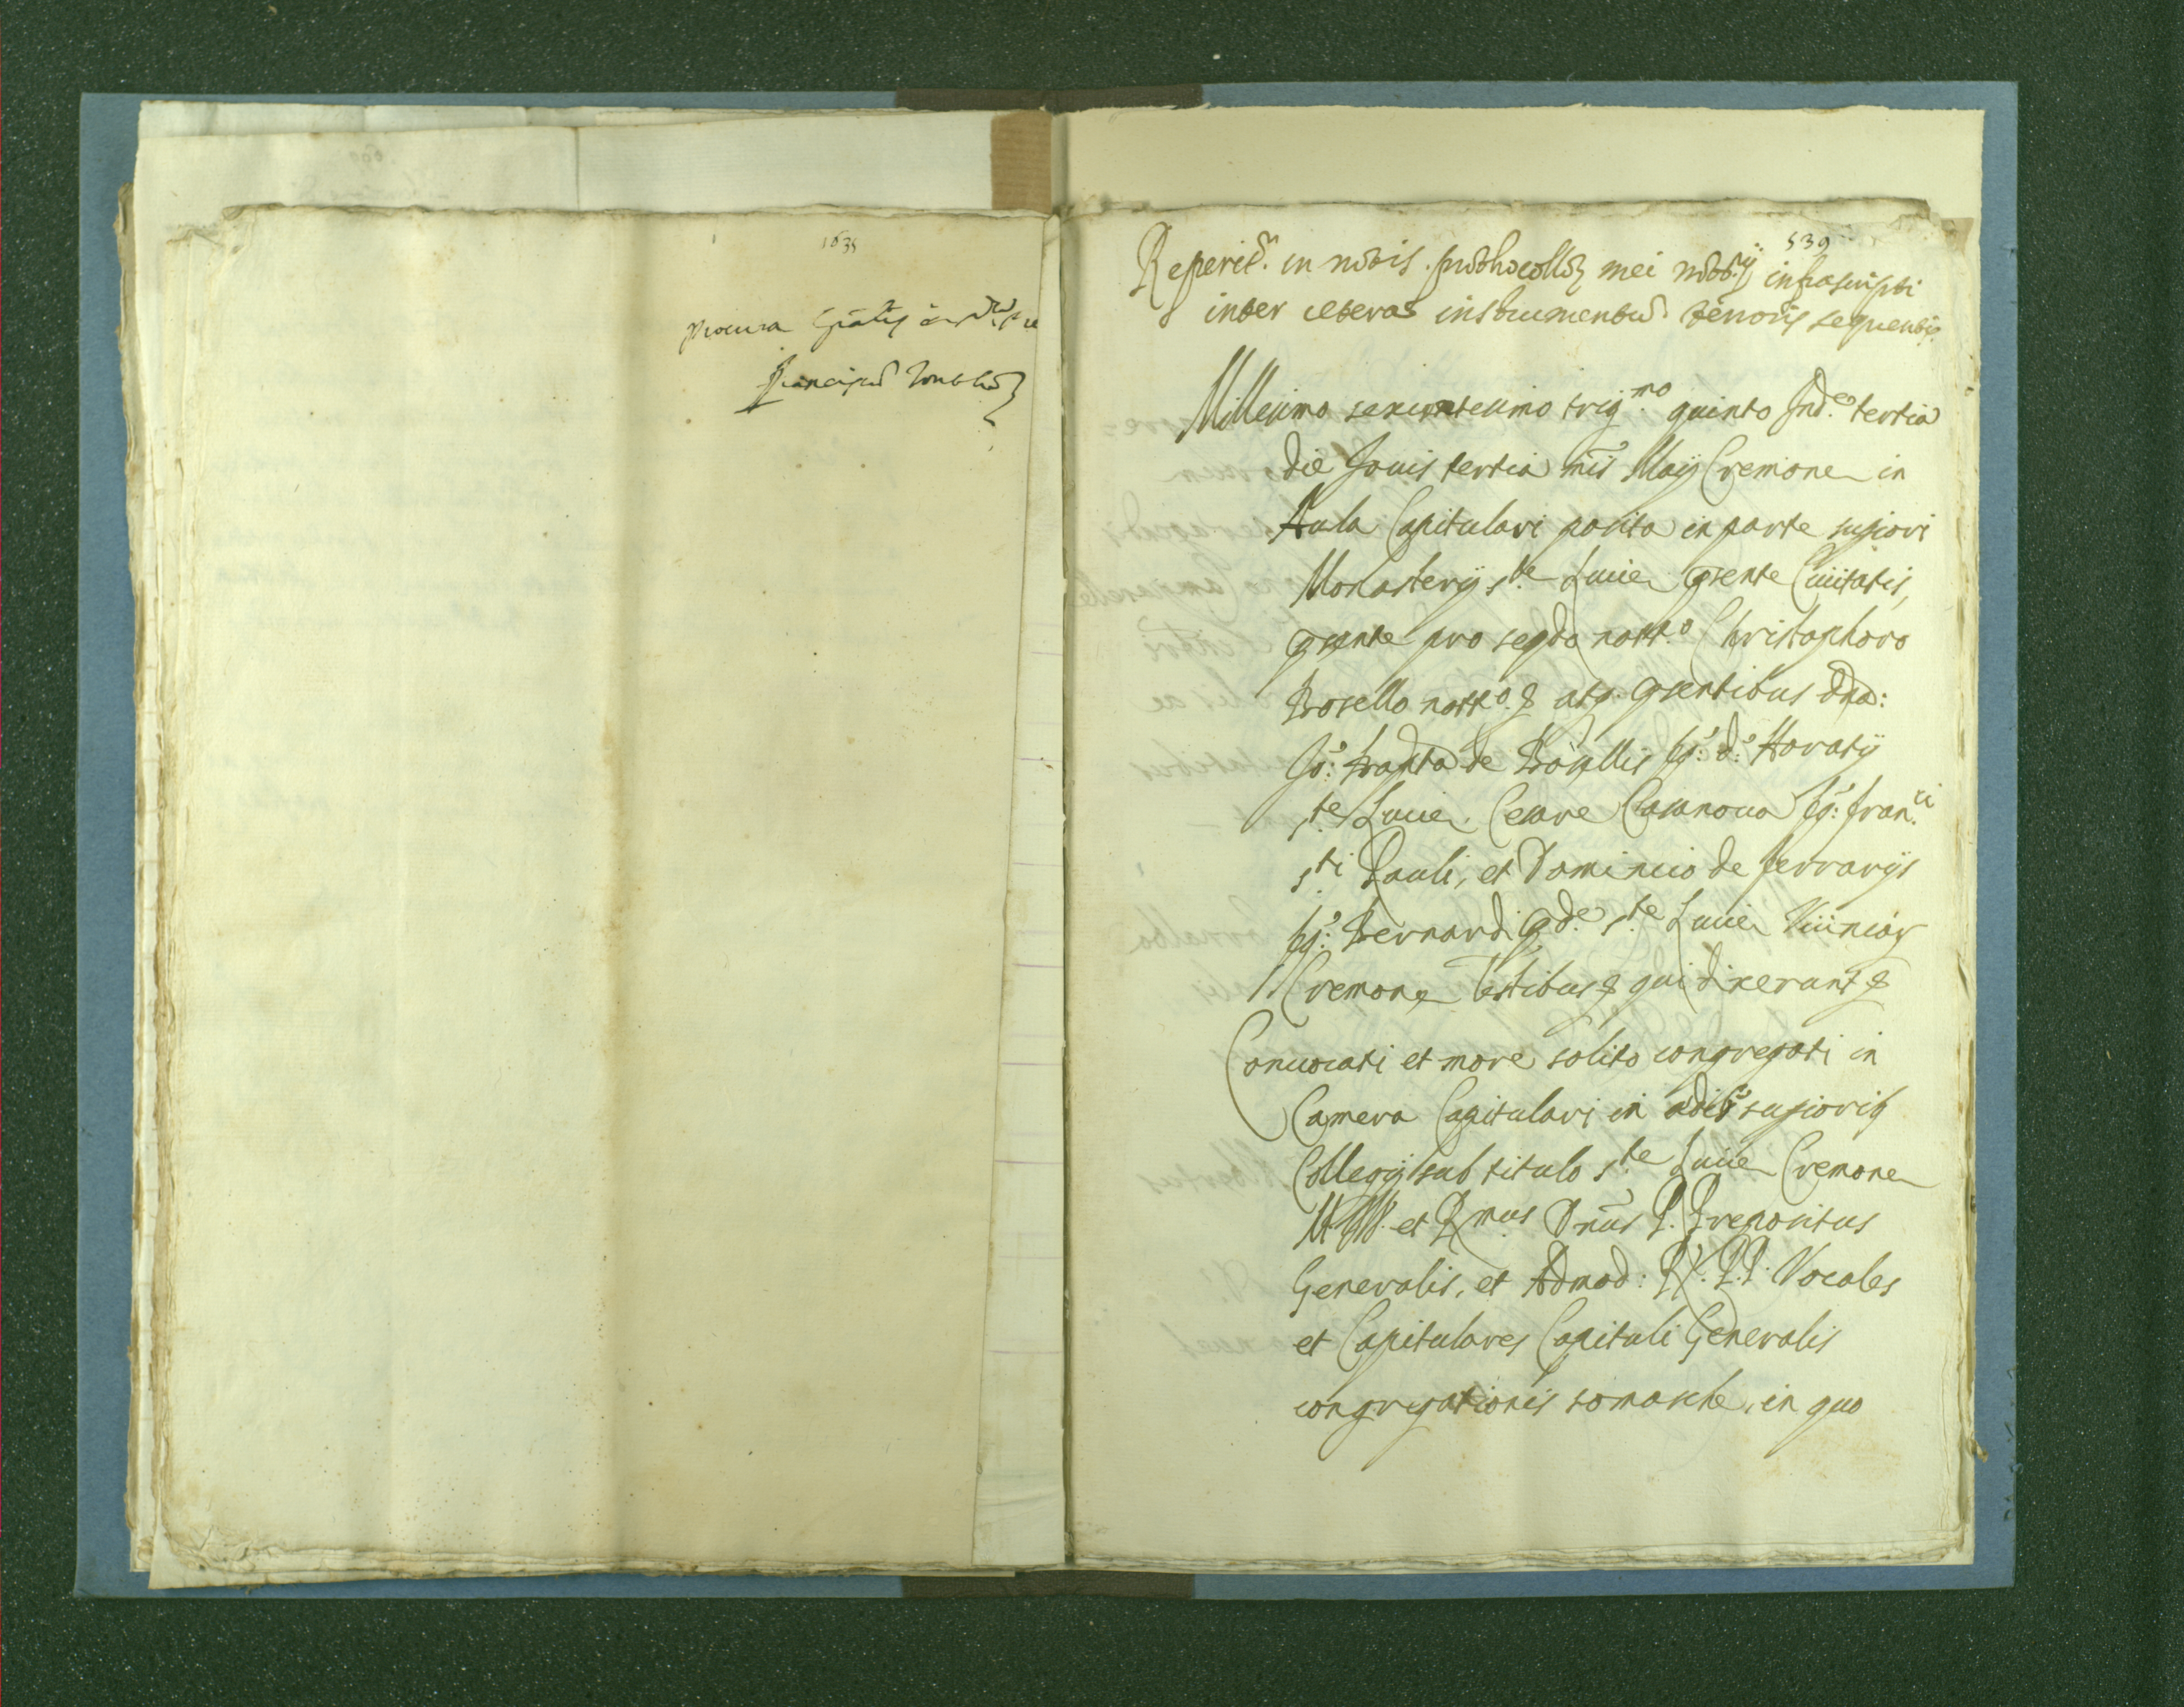 1635
procura
539
Reperit.r in notis prothocollor mei nott.ij infrascripti
inter ceteras instrumentu tenoris sequentis
Millesimo sexcentesimo trig.mo quinto Ind.e tertia
die Jouis tertia mis Maij Cremone in
Aula Capitulari posita in parte supiori
Monasterij s.te Lucie psente Ciuitatis,
psente pro segdo nott.o Christophoro
Bosello nott.o & atq psentibus dno:
Jo: Bapta de Bosellis fq: d: Horatij
s.te Lucie, Cesare Casanoua fq: Fran.ci
s.ti Pauli, et Dominico de Ferrarijs
fq: Bernardi pd.e s.te Lucie Viciniar
Cremone testibus & qui dixerunt &
Conuocati et more solito congregati in
Camera Capitulari in edib supiorib
Collegij sub titulo s.te Lucie Cremone
et R.mus Dnus P. Prepositus
Generalis, et Admod: RR. P.P. Vocales
et Capitulares Capituli Generalis
congregationis somasche, in quo